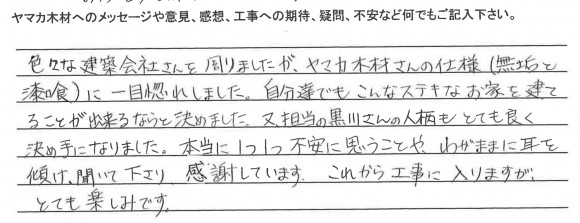 ヤマカ木材へのメッセージや意見、感想、工事への期待、疑問、不安など何でもご記入下さい。
色々な建築会社さんを周りましたが、ヤマカ木材さんの仕様(無垢と
漆喰)に一目惚れしました。自分達でもこんなステキなお家を建て
ることが出来るならと決めました。又、担当の黒川さんの人柄もとても良く
決め手になりました。本当に1つ1つ不安に思うことや、わがままに耳を
傾け、聞いて下さり、感謝しています。これから工事に入りますが、
とても楽しみです。